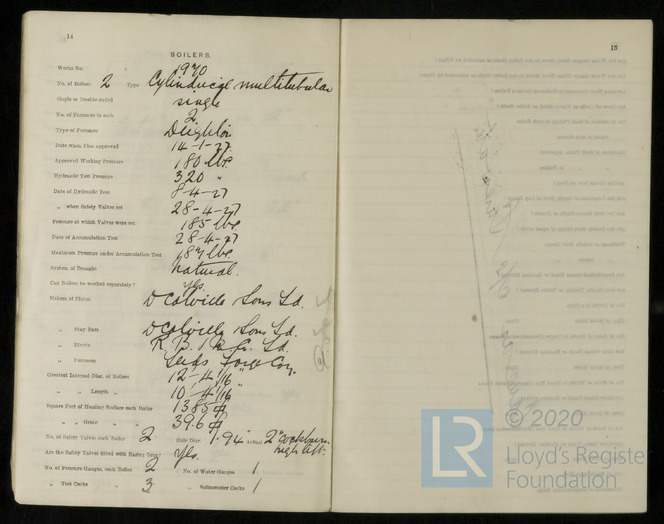 14
BOILERS.
Works No. 1970
No. of Boilers 2 Type Cylindrical multitubular
Single or Double-ended single
No. of Furnaces in each 2
Type of Furnaces Deighton
Date when Plan approved 14-1-27
Approved Working Pressure 180 lbs.
Hydraulic Test Pressure 320 "
Date of Hydraulic Test 8-4-27
„ when Safety Valves set 28-4-27
Pressure at which Valves were set 185 lbs
Date of Accumulation Test 28-4-27
Maximum Pressure under Accumulation Test 187 lbs.
System of Draught Natural.
Can Boilers be worked separately? Yes.
Makers of Plates D Colville Sons Ld.
„ Stay Bars D Colville Sons Ld.
„ Rivets R. B. & N. Co. Ld.
„ Furnaces Leeds Forge Coy.
Greatest Internal Diam. of Boilers 12'-4 1/16"
„ „ Length „ 10'-4 1/16"
Square Feet of Heating Surface each Boiler 1385
„ „ Grate „ „ 39.6
No. of Safety Valves each Boiler 2 Rule Diam. 1.94 Actual 2" Cockburn
high lift.
Are the Safety Valves fitted with Easing Gear? Yes.
No. of Pressure Gauges, each Boiler 2 No. of Water Gauges 1
„ Test Cocks „ 3 „ Salinometer Cocks 1
15
© 2020
LR
Lloyd's Register
Foundation